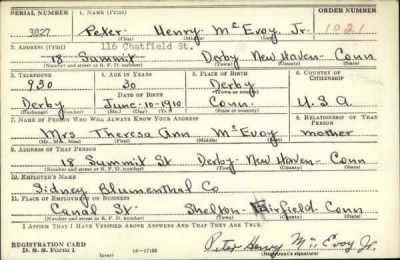 SERIAL NUMBER 1. NAME (Print) ORDER NUMBER
3827 Peter Henry McEvoy Jr. 1021
(First) (Middle) (Last)
2. ADDRESS (Print) 116 Chatfield St.
18 Summit Derby New Haven Conn
(Number and street or R. F. D. number) (Town) (County) (State)
3. TELEPHONE 4. AGE IN YEARS 5. PLACE OF BIRTH 6. COUNTRY OF CITIZENSHIP
930 30 Derby
DATE OF BIRTH (Town or county)
Derby June-10-1910 Conn. U.S.A
(Exchange) (Number) (Mo.) (Day) (Yr.) (State or country)
7. NAME OF PERSON WHO WILL ALWAYS KNOW YOUR ADDRESS 8. RELATIONSHIP OF THAT PERSON
Mrs Theresa Ann McEvoy mother
(Mr., Mrs., Miss) (First) (Middle) (Last)
9. ADDRESS OF THAT PERSON
18 Summit St Derby New Haven Conn
(Number and street or R. F. D. number) (Town) (County) (State)
10. EMPLOYER'S NAME
Sidney Blumenthal Co
11. PLACE OF EMPLOYMENT OR BUSINESS
Canal St Shelton Fairfield Conn
(Number and street or R. F. D. number) (Town) (County) (State)
I AFFIRM THAT I HAVE VERIFIED ABOVE ANSWERS AND THAT THEY ARE TRUE.
REGISTRATION CARD
D. S. S. Form 1 16-17105 Peter Henry McEvoy Jr.
(Registrant's signature)